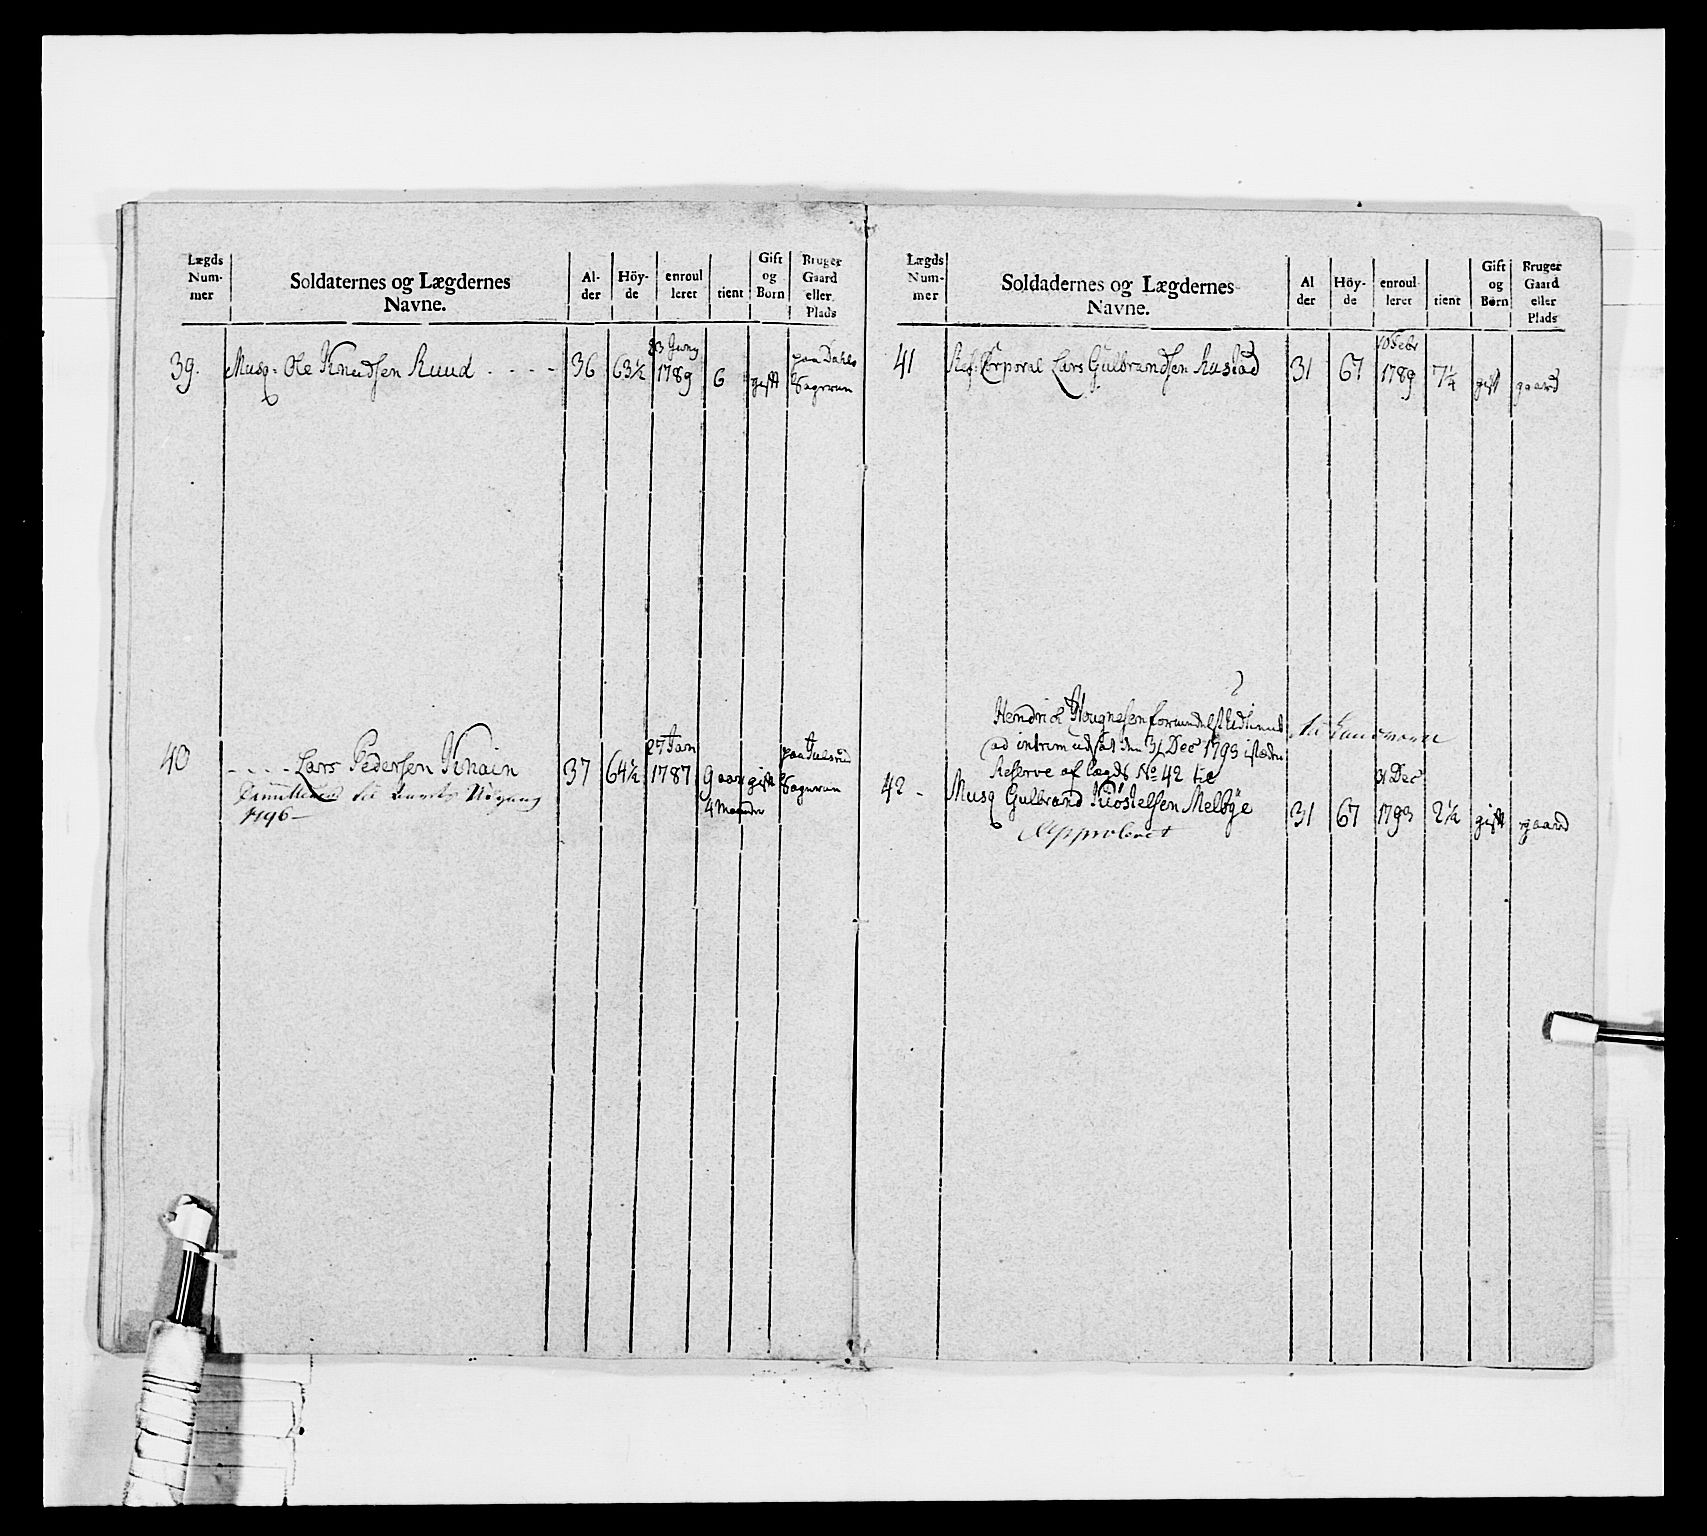 Lægds
Num-
mer
Soldaternes og Lægdernes
Navne.
Al-
der
Höy-
de
enroul
leret
tient
Gift
og
Börn
Bruger
Gaard
eller
Plads
39.
Musq. Ole Knudsen Ruud . . . -
36
63½
23 Juny
1789
6
gift
paa Dahls
40
- . . . - Lars Pedersen Knain
Dimitteret
1796 -
37
64½
27 Jan
1787
9 aar
4 Maaneder
gift
paa Julsrud
Lægds
Num-
mer
Soldadernes og Lægdernes
Navne.
Al
der
Höy-
de
enroul
leret
tient
Gift
og
Børn
Bruger
Gaard
eller
Plads
41
Ref. Corporal Lars Gulbrandsen Rustad
31
67
10 Febr
1789
7¼
gift
gaard
Hendrich
ad intrim udsat den 31 Dec 1793 istæden
Reserve af Lægds No 42 til
42 -
Musq Gulbrand Kiøstelsen Melbye
Approberet
31
67
31 Dec
1793
2½
gift
gaard